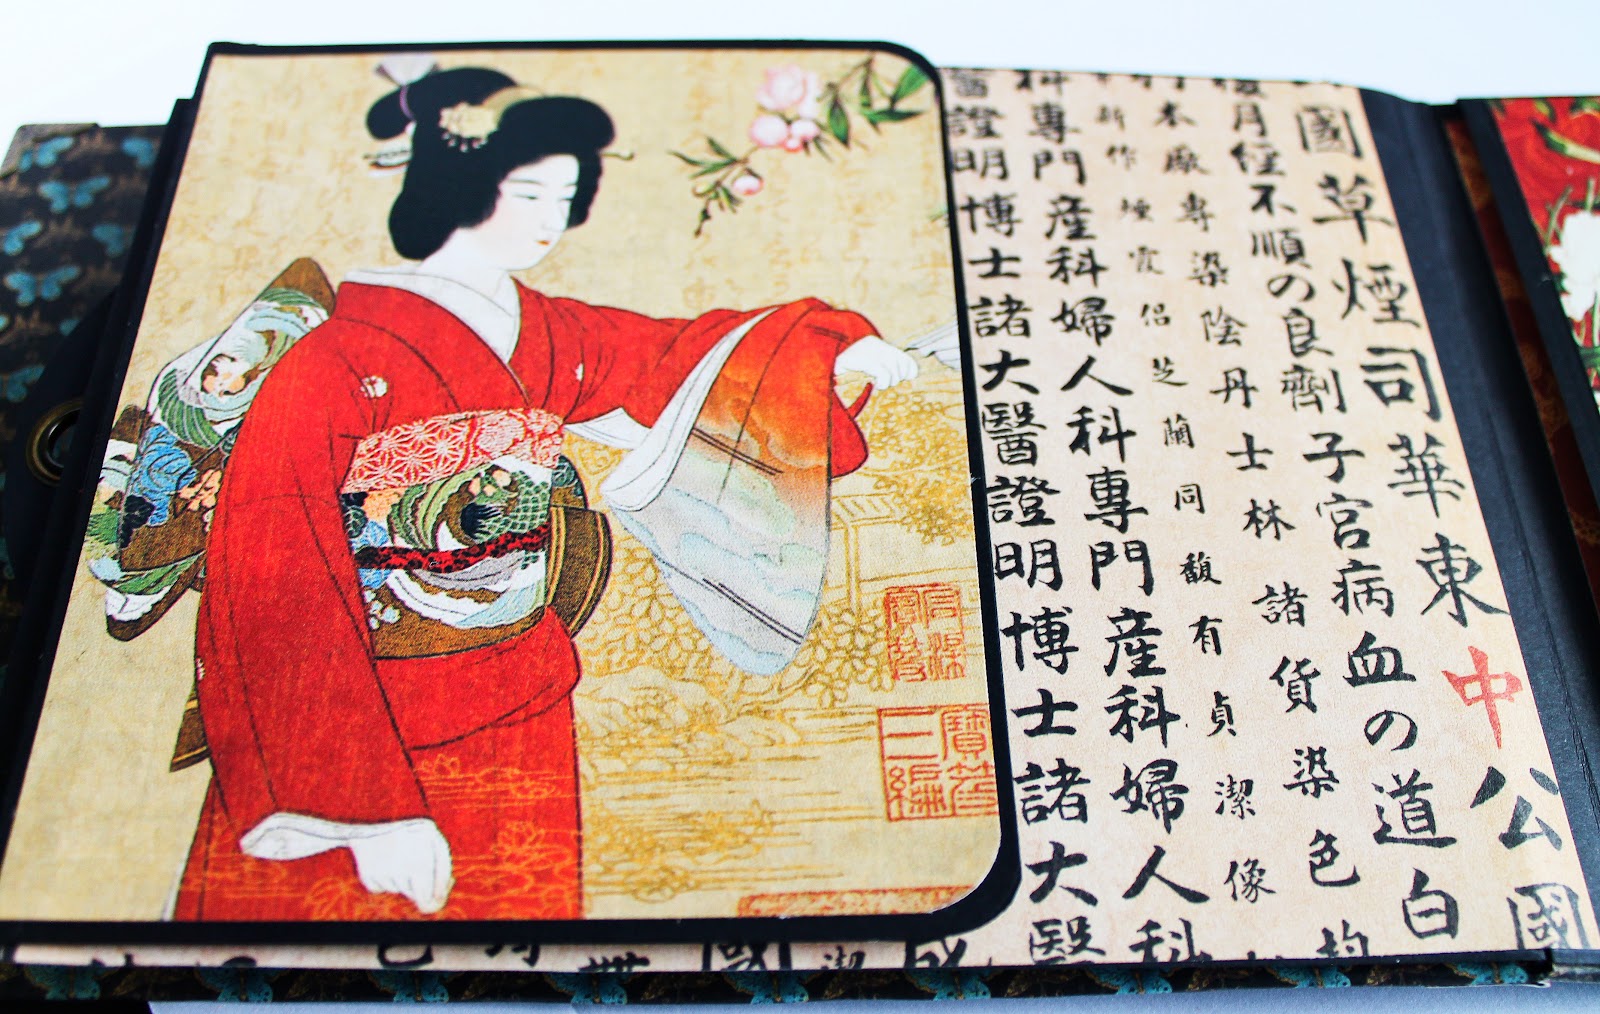 國草煙司華東中公國
月經不順の良劑子宮病血の道白
本廠專染陰丹士林諸貨染色均
新作煙霞侶芝蘭同馥有貞潔像
科專門産科婦人科專門産科婦人科
醫證明博士諸大醫證明博士諸大醫